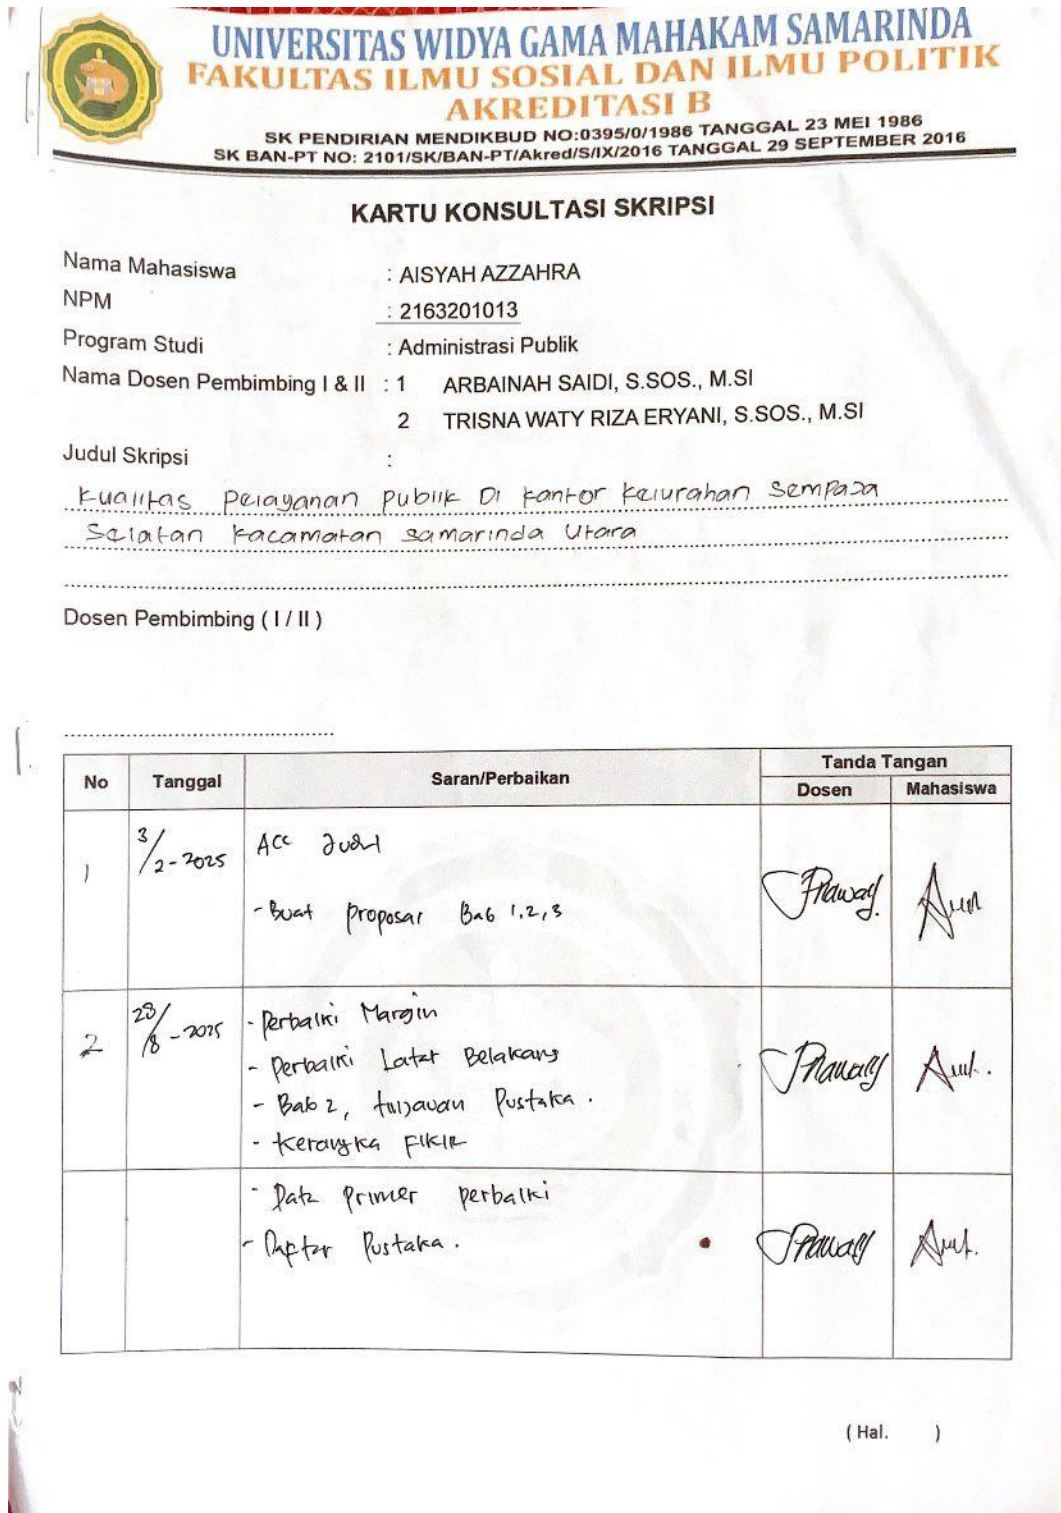 UNIVERSITAS WIDYA GAMA MAHAKAM SAMARINDA
FAKULTAS ILMU SOSIAL DAN ILMU POLITIK
AKREDITASI B
SK PENDIRIAN MENDIKBUD NO:0395/0/1986 TANGGAL 23 MEI 1986
SK BAN-PT NO: 2101/SK/BAN-PT/Akred/S/IX/2016 TANGGAL 29 SEPTEMBER 2016
KARTU KONSULTASI SKRIPSI
Nama Mahasiswa : AISYAH AZZAHRA
NPM : 2163201013
Program Studi : Administrasi Publik
Nama Dosen Pembimbing I & II : 1 ARBAINAH SAIDI, S.SOS., M.SI
2 TRISNA WATY RIZA ERYANI, S.SOS., M.SI
Judul Skripsi :
Kualitas Pelayanan Publik Di Kantor Kelurahan Sempaja
Selatan Kacamatan Samarinda Utara
Dosen Pembimbing ( I / II )
No Tanggal Saran/Perbaikan Tanda Tangan
Dosen Mahasiswa
1 3/2-2025 Acc Judul
- Buat Proposal Bab 1,2,3
2 28/8-2025 - Perbaiki Margin
- Perbaiki Latar Belakang
- Bab 2, tinjauan Pustaka.
- Kerangka FIKIR
- Data Primer perbaiki
- Daptar Pustaka.
( Hal. )